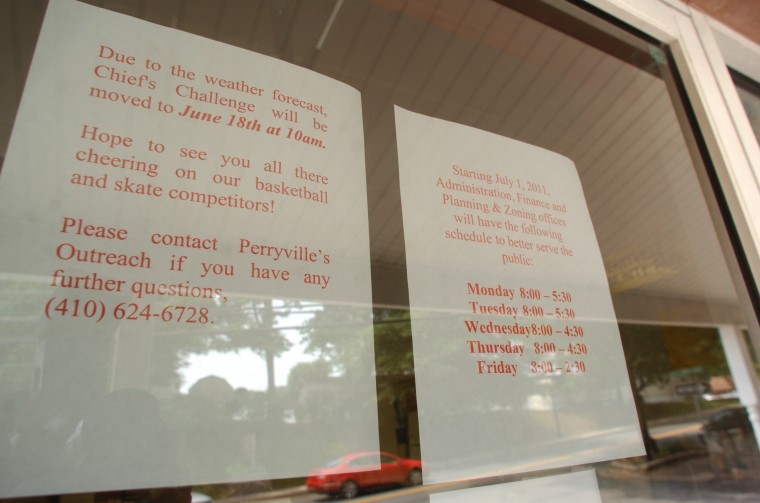 Due to the weather forecast,
Chief's Challenge will be
moved to June 18th at 10am.
Hope to see you all there
cheering on our basketball
and skate competitors!
Please contact Perryville's
Outreach if you have any
further questions,
(410) 624-6728.
Starting July 1, 2011,
Administration, Finance and
Planning & Zoning offices
will have the following
schedule to better serve the
public:
Monday 8:00 – 5:30
Tuesday 8:00 – 5:30
Wednesday8:00 – 4:30
Thursday 8:00 – 4:30
Friday 8:00 – 2:30